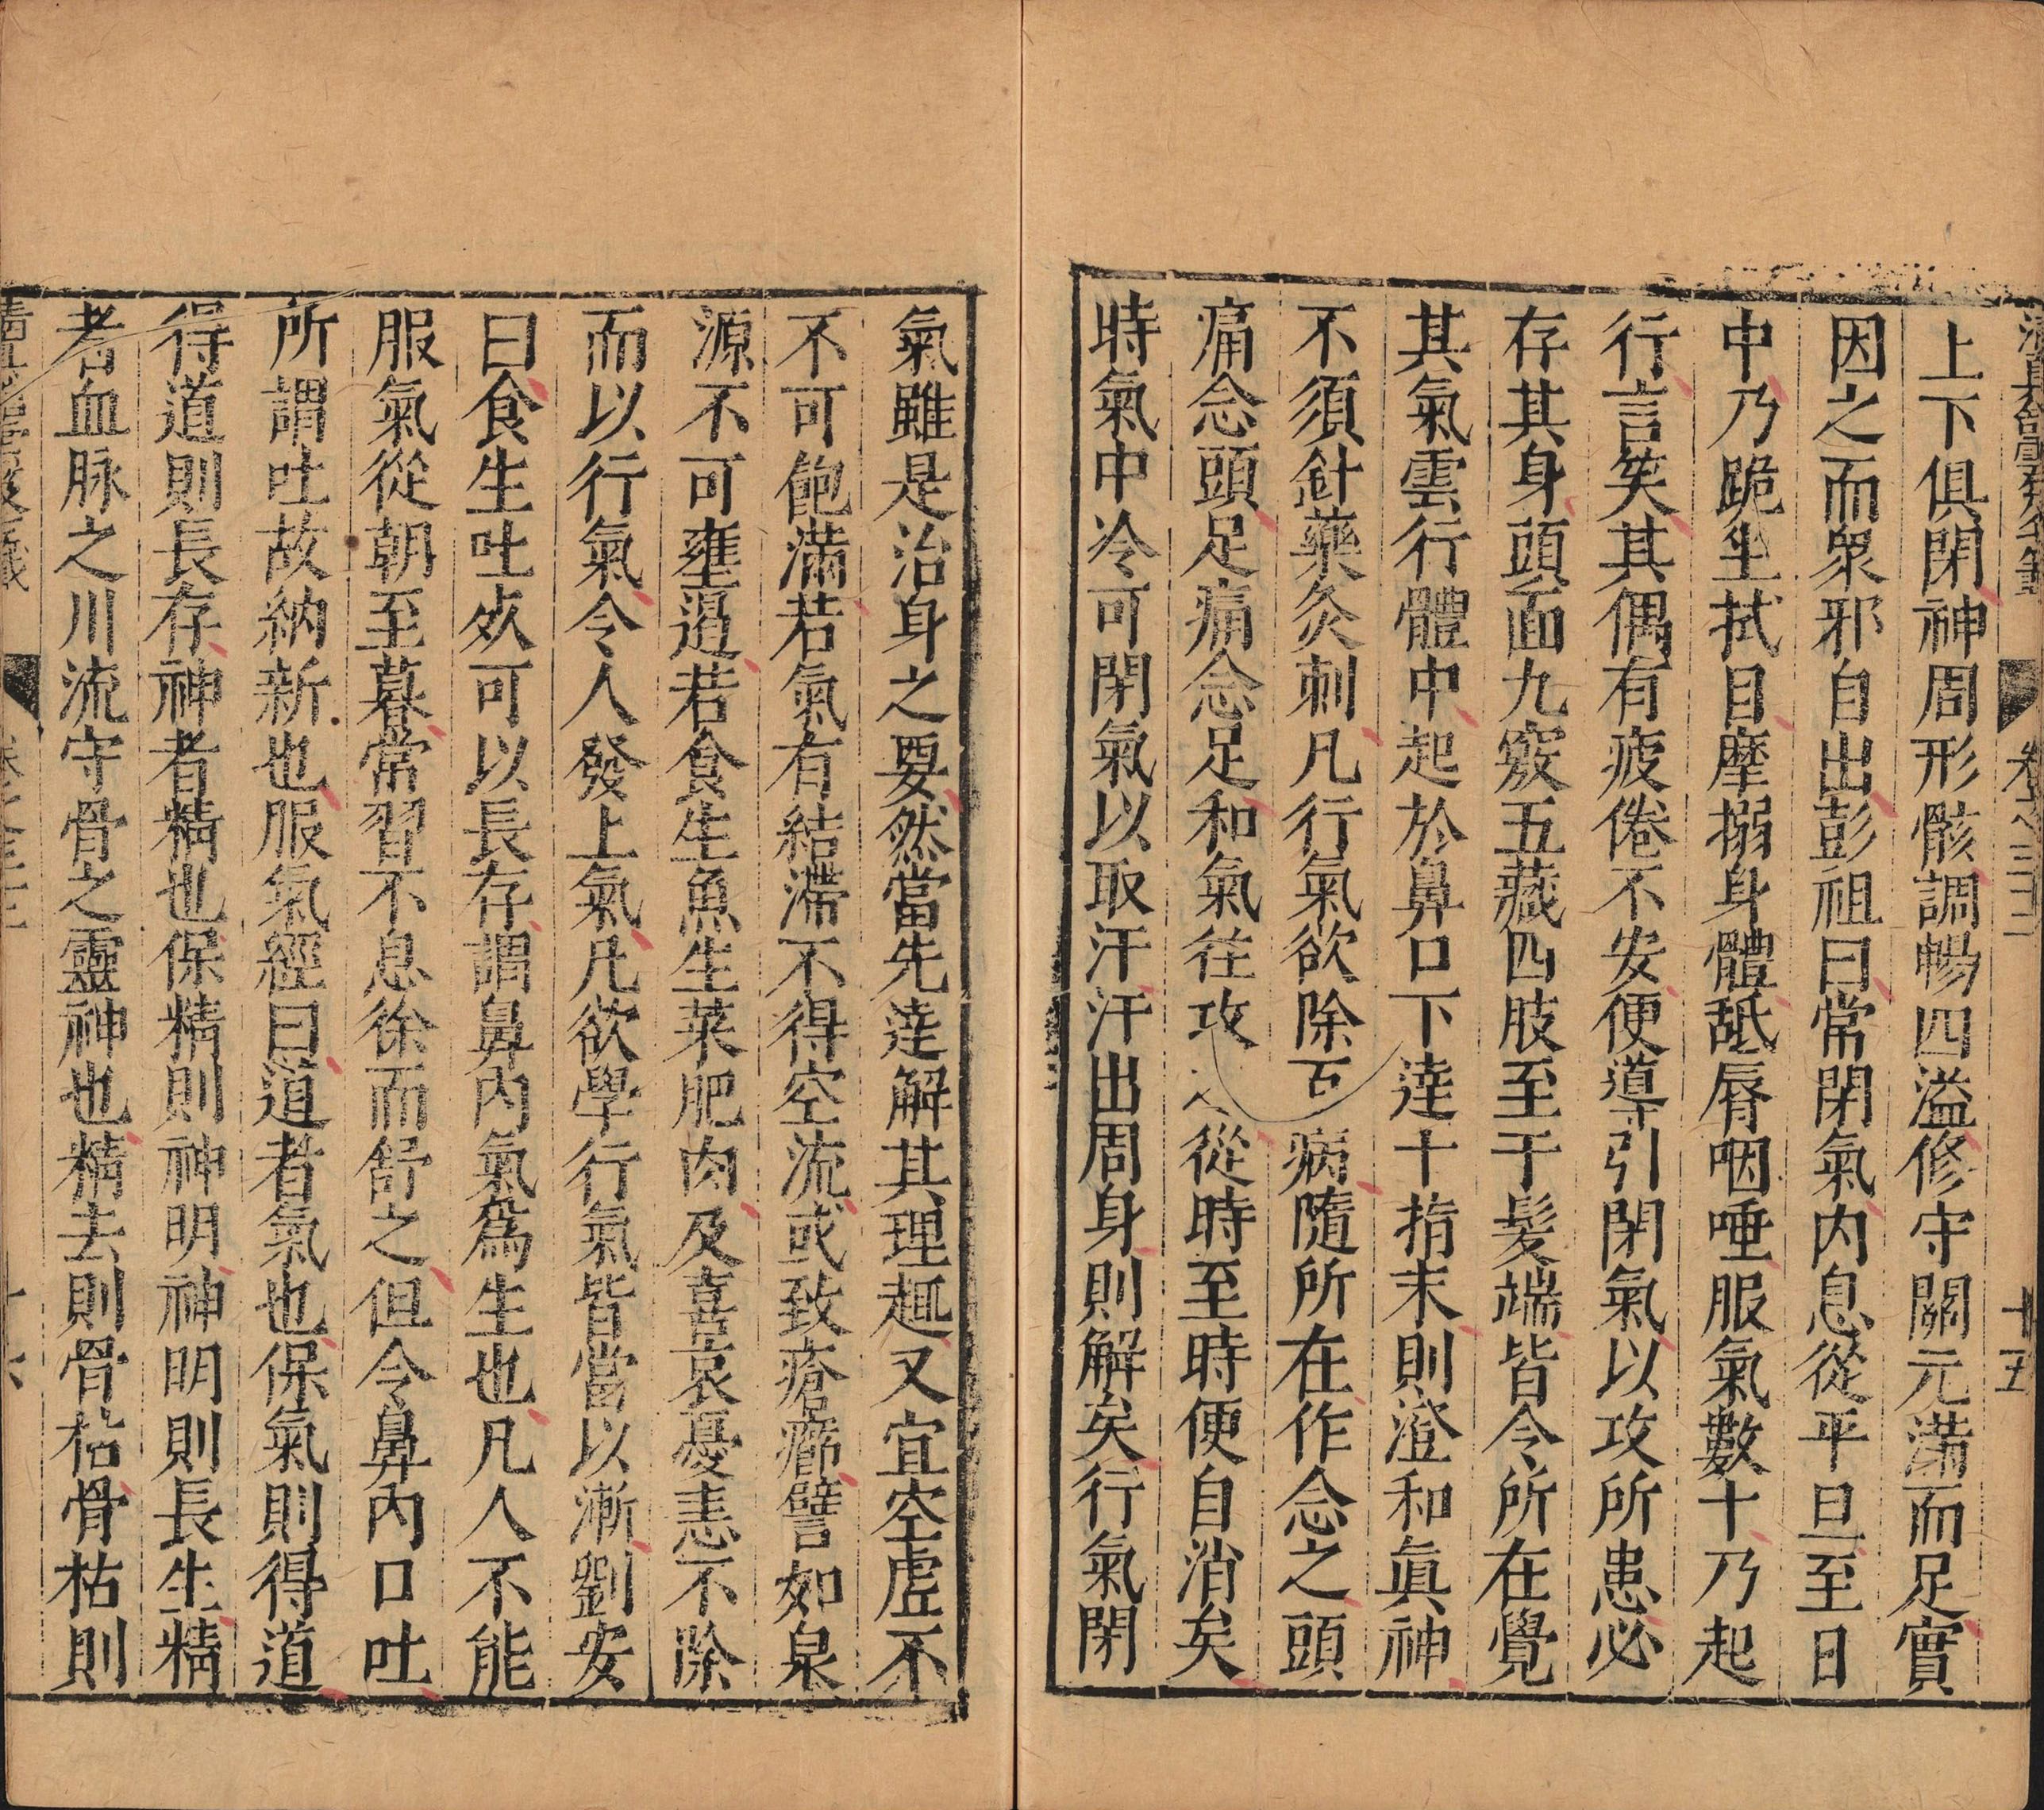 卷之三十三 十五
上下俱閉神周形骸調暢四溢修守關元滿而足實
因之而衆邪自出彭祖曰常閉氣內息從平旦至日
中乃跪坐拭目摩搦身體舐唇咽唾服氣數十乃起
行言笑其偶有疲倦不安便導引閉氣以攻所患必
存其身頭面九竅五藏四肢至于髮端皆令所在覺
其氣雲行體中起於鼻口下達十指末則澄和眞神
不須針藥灸刺凡行氣欲除百病隨所在作念之頭
痛念頭足痛念足和氣往攻從時至時便自消矣
時氣中冷可閉氣以取汗汗出周身則解矣行氣閉
氣雖是治身之要然當先達解其理趣又宜空虛不
不可飽滿若氣有結滯不得空流或致瘡癤譬如泉
源不可壅遏若食生魚生菜肥肉及喜哀憂恚不除
而以行氣令人發上氣凡欲學行氣皆當以漸劉安
曰食生吐炁可以長存謂鼻內氣爲生也凡人不能
服氣從朝至暮常習不息徐而舒之但令鼻內口吐
所謂吐故納新也服氣經曰道者氣也保氣則得道
得道則長存神者精也保精則神明神明則長生精
者血脉之川流守骨之靈神也精去則骨枯骨枯則